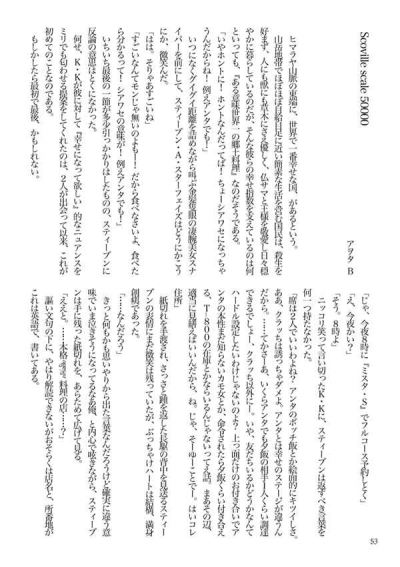 Scoville scale 50000
アヲタ B
ヒマラヤ山脈の東端に、世界で一番幸せな国、があるという。
山岳地帯でほぼほぼ自給自足に近い簡素な生活を営む国民は、殺生を
好まず、人にも獣にも草木にさえ優しく、仏サマと王様を敬愛し日々穏
やかに暮らしているのだが、そんな彼らの幸せ指数を支えているのは何
といっても、『ある意味世界一の郷土料理』なのだそうである。
「いやホントに! ホントなんだってば! ちょーシアワセになっちゃ
うんだからね! 例えアンタでも!」
いつになくグイグイ距離を詰めながら叫ぶ金髪隻眼の凄腕美女スナ
イパーを前にして、スティーブン・A・スターフェイズはどうにかこう
にか、微笑んだ。
「はは、そりゃあすごいね」
「すごいなんてモンじゃないのよ! だから食べなさいよ、食べた
ら分かるって! シアワセの意味が! 例えアンタでも!」
いちいち最後の一節が多少引っかかりはしたものの、スティーブンに
反論の意思はとくになかった。
何せ、K・Kが彼に対して『幸せになって欲しい』的なニュアンスを
ミリでも匂わせる提案をしてくれたのは、2人が出会って以来、これが
初めてのことなのである。
もしかしたら最初で最後、かもしれない。
「じゃ、今夜8時に『ミスタ・S』でフルコース予約しとく」
「え、今夜かい?」
「そう。8時よ」
ニッコリ笑って言い切ったK・Kに、スティーブンは返すべき言葉を
何一つ持たなかった。
「席は2人でいいわよね? アンタのボッチ飯とか絵面的にキツイしさ。
ああ、クラっちは誘っちゃダメよ、アンタとは幸せのステージが違うん
だから。……てかさーあ、いくらアンタでも夕飯の相手1人くらい調達
できるでしょー、クラっち以外に。いや、友だちいるかどうかなんて
ハードル設定したいわけじゃないのよ? 上っ面だけのお付き合いでア
ンタの本性まだ知らないカモ女とか、命令されたら夕飯くらい付き合え
る、T-800の在庫とかならいるんじゃないってえ話。まあその辺、
適当に見繕えばいいんだから、ね。じゃ、そーゆーことでー。はいコレ
住所」
紙切れを手渡され、さっさと踵を返した長躯の背中を見送るスティー
ブンの表情にまだ微笑は残っていたが、ぶっちゃけハートは結構、満身
創痍であった。
「……なんだろう」
きっと何もかも思いやりから出た言葉なんだろうけど確実に違う意
味でいま泣きそうになってるなあ俺、と内心で呟きながら、スティーブ
ンは手に残った紙切れを、あらためて広げて見る。
「ええと。……本格(通読不可)料理の店……?」
謳い文句の下に、やはり解読できないがおそらくは店名と、所番地が
これは英語で、書いてある。
53